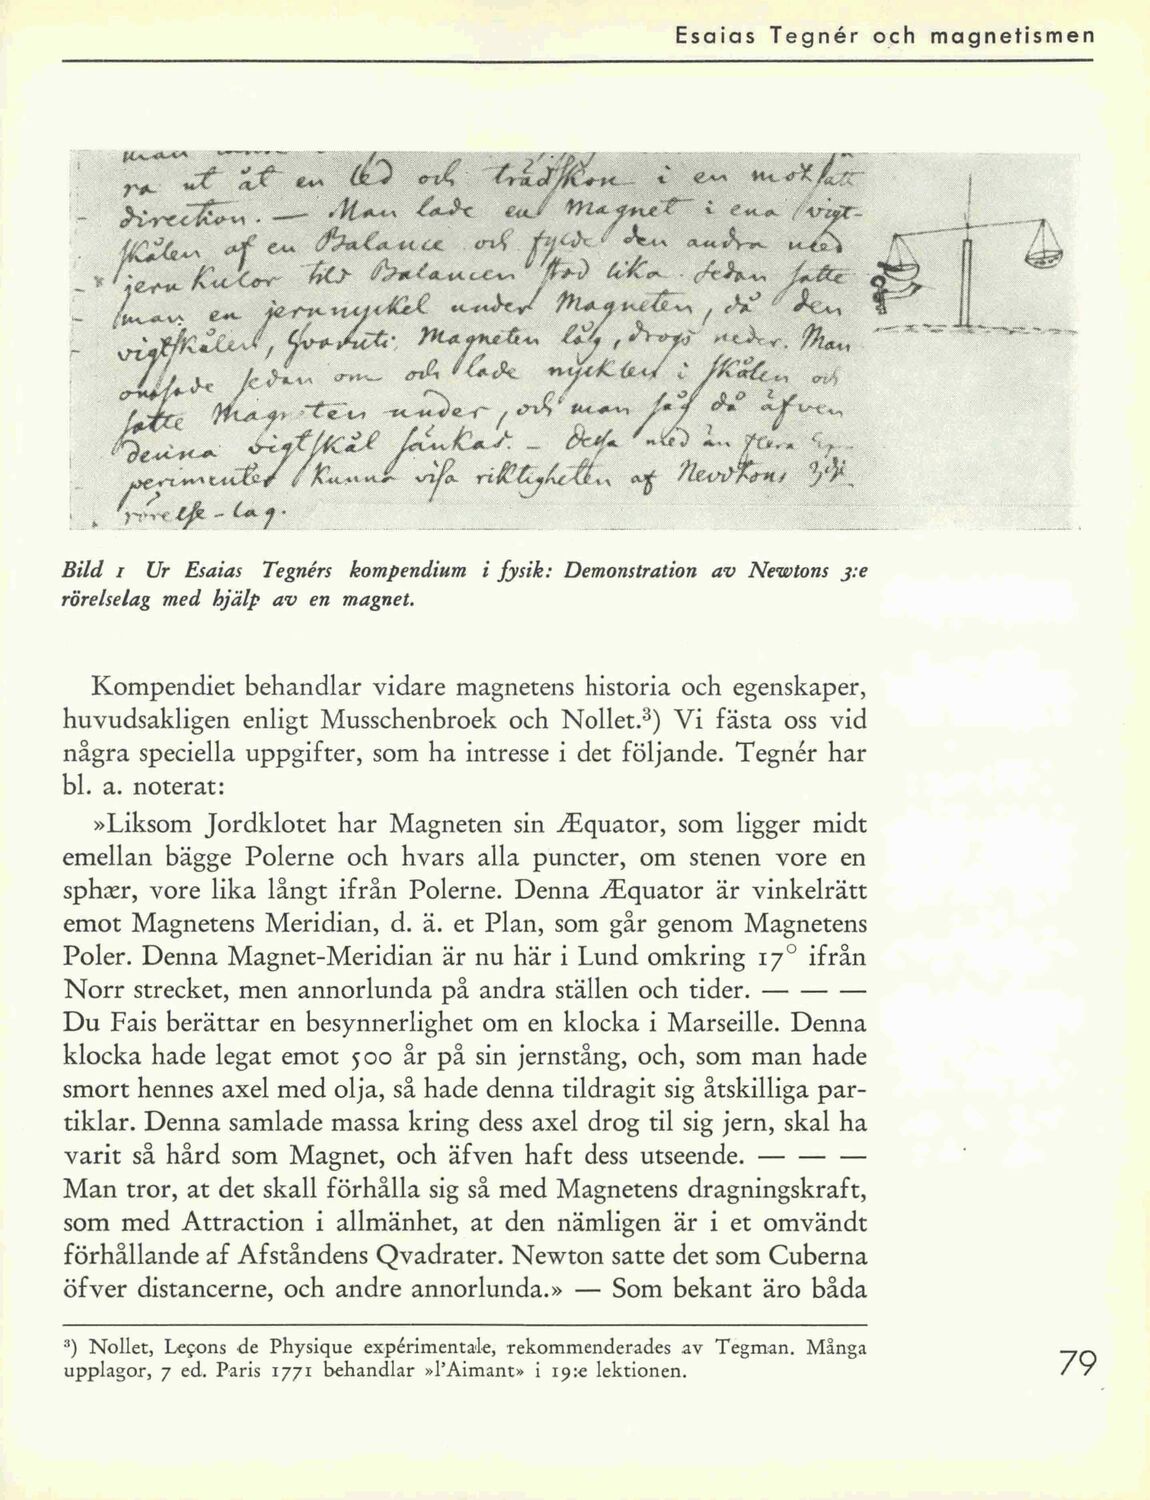 Esaias Tegnér och magnetismen
ra ut åt en led och trädskon i en motsatt
direction. — Man lade en Magnet i ena vigt-
skålen af en Balance och fylde den andra med
jern kulor tils Balancen stod lika. Sedan satte
man en jernnyckel under Magneten, då den
vigtskålen, hvaruti Magneten låg, drogs neder. Man
sedan om och lade nyckeln i skålen och
satte Magneten under, och man såg då äfven
denna vigtskål sänkas. — Dessa med än flera Ex-
perimenter kunna visa riktigheten af Nevvtons 3dje
rörelse-lag.
Bild 1 Ur Esaias Tegnérs kompendium i fysik: Demonstration av Newtons 3:e
rörelselag med hjälp av en magnet.
Kompendiet behandlar vidare magnetens historia och egenskaper,
huvudsakligen enligt Musschenbroek och Nollet.³) Vi fästa oss vid
några speciella uppgifter, som ha intresse i det följande. Tegnér har
bl. a. noterat:
»Liksom Jordklotet har Magneten sin Æquator, som ligger midt
emellan bägge Polerne och hvars alla puncter, om stenen vore en
sphær, vore lika långt ifrån Polerne. Denna Æquator är vinkelrätt
emot Magnetens Meridian, d. ä. et Plan, som går genom Magnetens
Poler. Denna Magnet-Meridian är nu här i Lund omkring 17° ifrån
Norr strecket, men annorlunda på andra ställen och tider. — — —
Du Fais berättar en besynnerlighet om en klocka i Marseille. Denna
klocka hade legat emot 500 år på sin jernstång, och, som man hade
smort hennes axel med olja, så hade denna tildragit sig åtskilliga par-
tiklar. Denna samlade massa kring dess axel drog til sig jern, skal ha
varit så hård som Magnet, och äfven haft dess utseende. — — —
Man tror, at det skall förhålla sig så med Magnetens dragningskraft,
som med Attraction i allmänhet, at den nämligen är i et omvändt
förhållande af Afståndens Qvadrater. Newton satte det som Cuberna
öfver distancerne, och andre annorlunda.» — Som bekant äro båda
³) Nollet, Leçons de Physique expérimentale, rekommenderades av Tegman. Många
upplagor, 7 ed. Paris 1771 behandlar »l'Aimant» i 19:e lektionen.
79